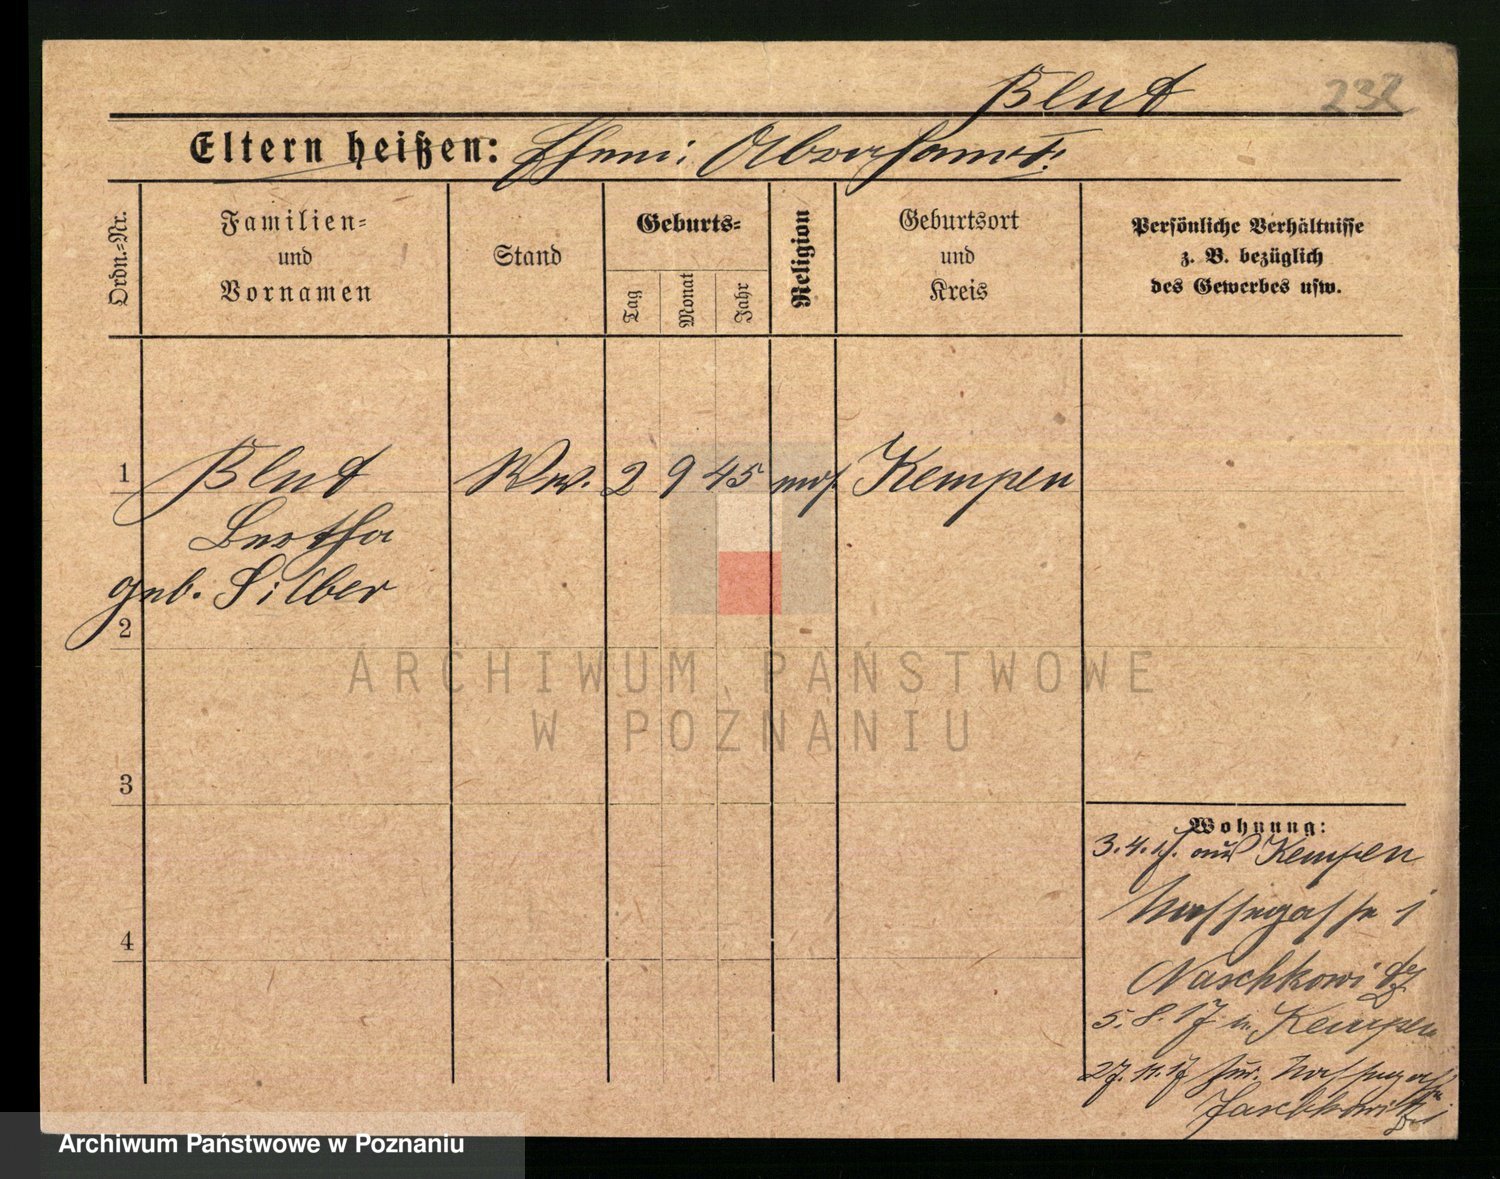 Blut 232
Eltern heißen:
Ordn.=Nr.
Familien=
und
Vornamen
Stand
Geburts=
Tag
Monat
Jahr
Religion
Geburtsort
und
Kreis
Persönliche Verhältnisse
z. B. bezüglich
des Gewerbes usw.
1 Blut Ww. 2 9 45 mos. Kempen
Bertha
geb. Silber
2
3
4
Wohnung:
3.4.17. aus Kempen
5.8.17 n. Kempen
27.11.17
ARCHIWUM PAŃSTWOWE
W POZNANIU
Archiwum Państwowe w Poznaniu